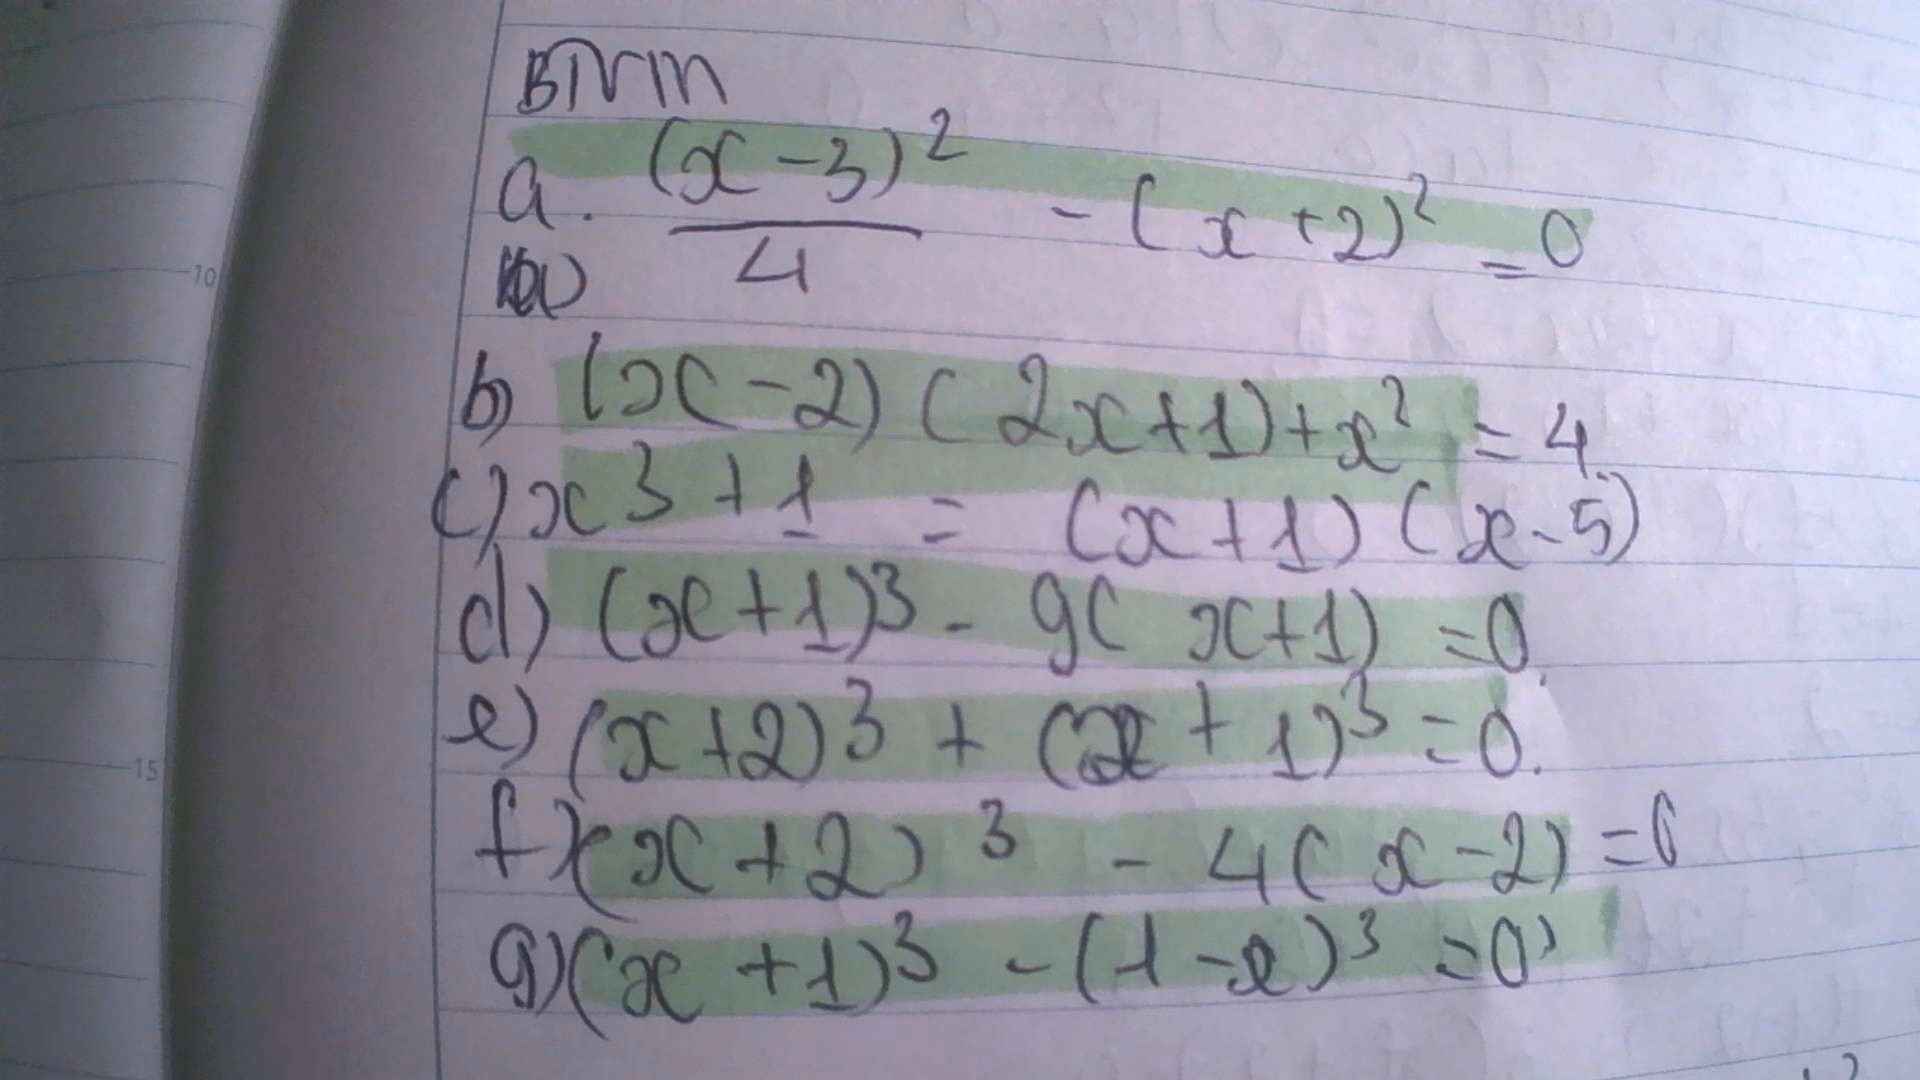 BTVN
a. (x-3)²/4 - (x+2)² = 0
b) (x-2)(2x+1)+x² = 4
c) x³+1 = (x+1)(x-5)
d) (x+1)³ - 9(x+1) = 0
e) (x+2)³ + (x+1)³ = 0.
f) (x+2)³ - 4(x-2) = 0
g) (x+1)³ - (1-x)³ = 0
10
15